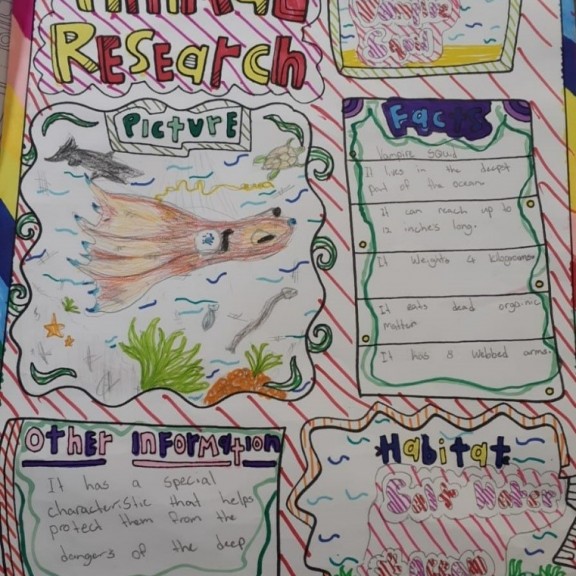 Animal
Research
Vampire
Squid
Picture
Facts
Vampire Squid
It lives in the deepest
part of the ocean
It can reach up to
12 inches long.
It Weights 4 klograms.
It eats dead organic
matter
It has 8 webbed arms.
Other Information
It has a special
characteristic that helps
protect them from the
dangers of the deep
Habitat
Salt Water